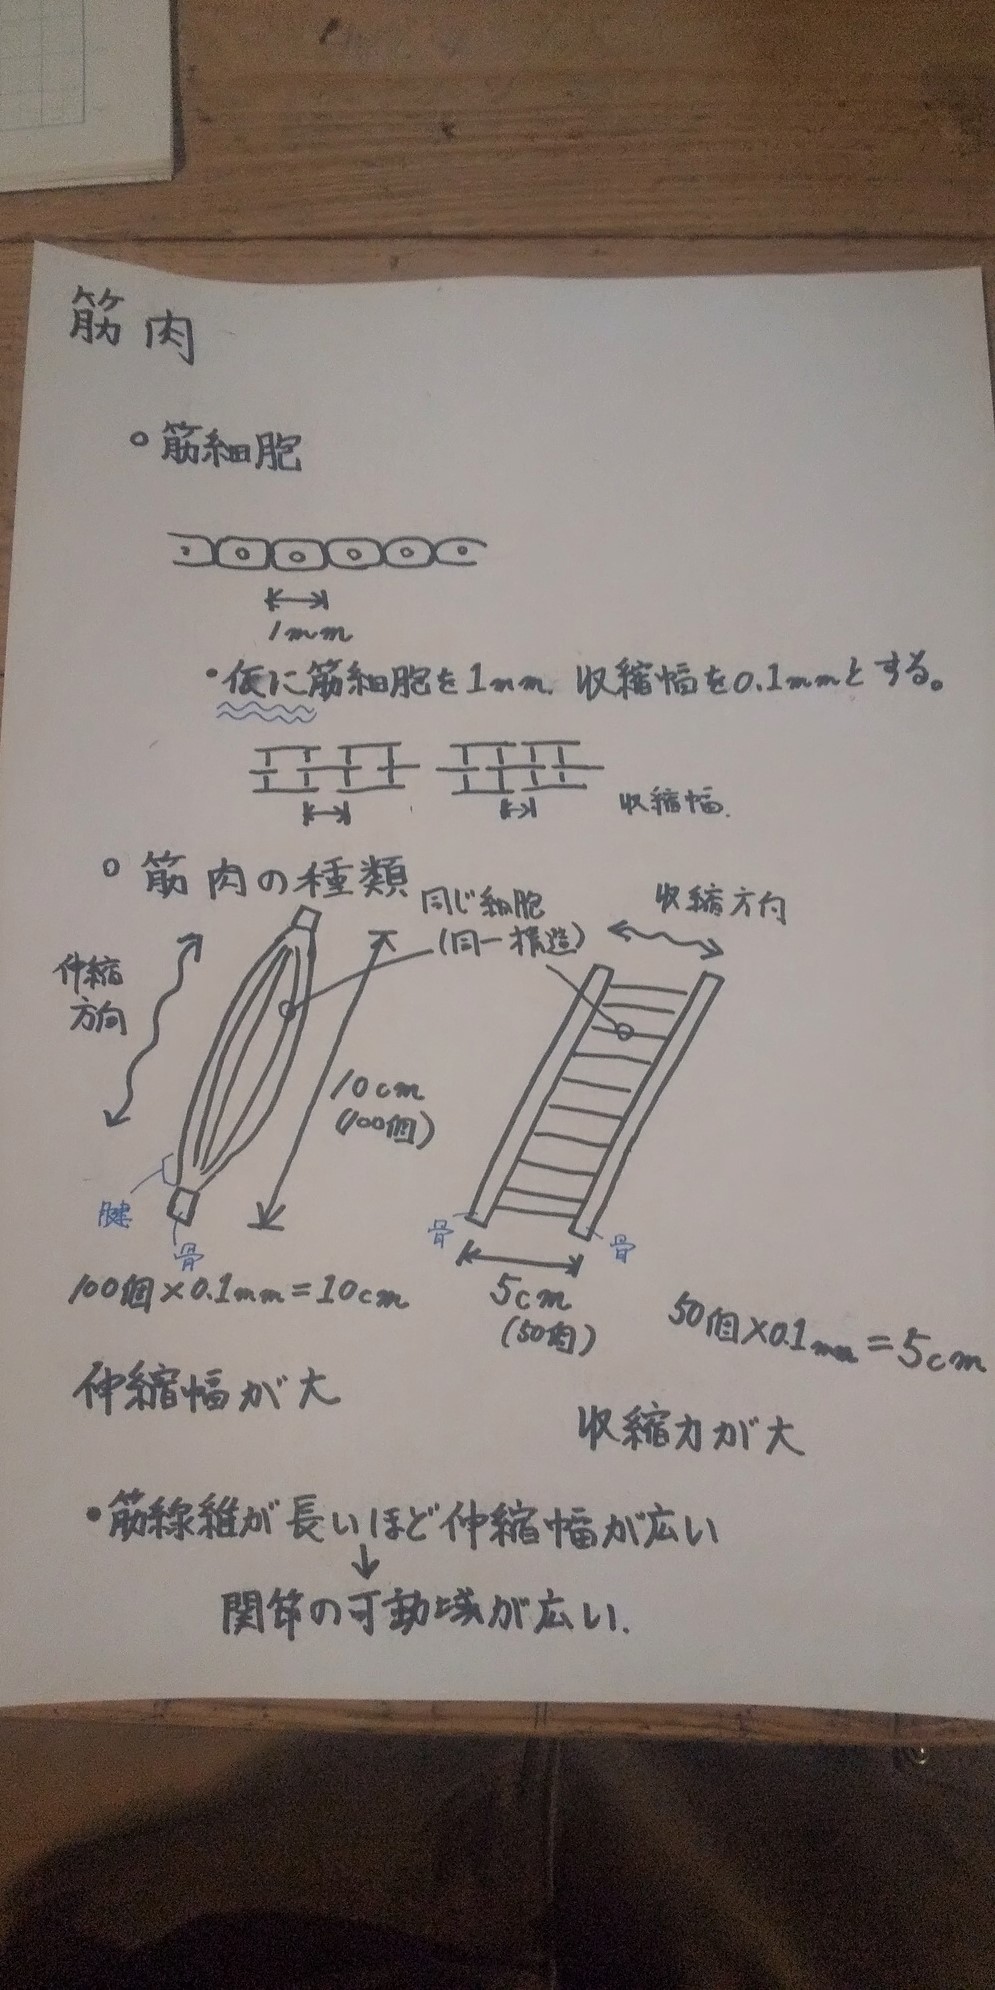 筋肉
○ 筋細胞
1mm
・仮に筋細胞を1mm、収縮幅を0.1mmとする。
収縮幅.
○ 筋肉の種類
同じ細胞
(同一構造)
収縮方向
伸縮
方向
10cm
(100個)
腱
骨
骨
骨
100個×0.1mm=10cm
5cm
(50個)
50個×0.1mm=5cm
伸縮幅が大
収縮力が大
・筋線維が長いほど伸縮幅が広い
↓
関節の可動域が広い.